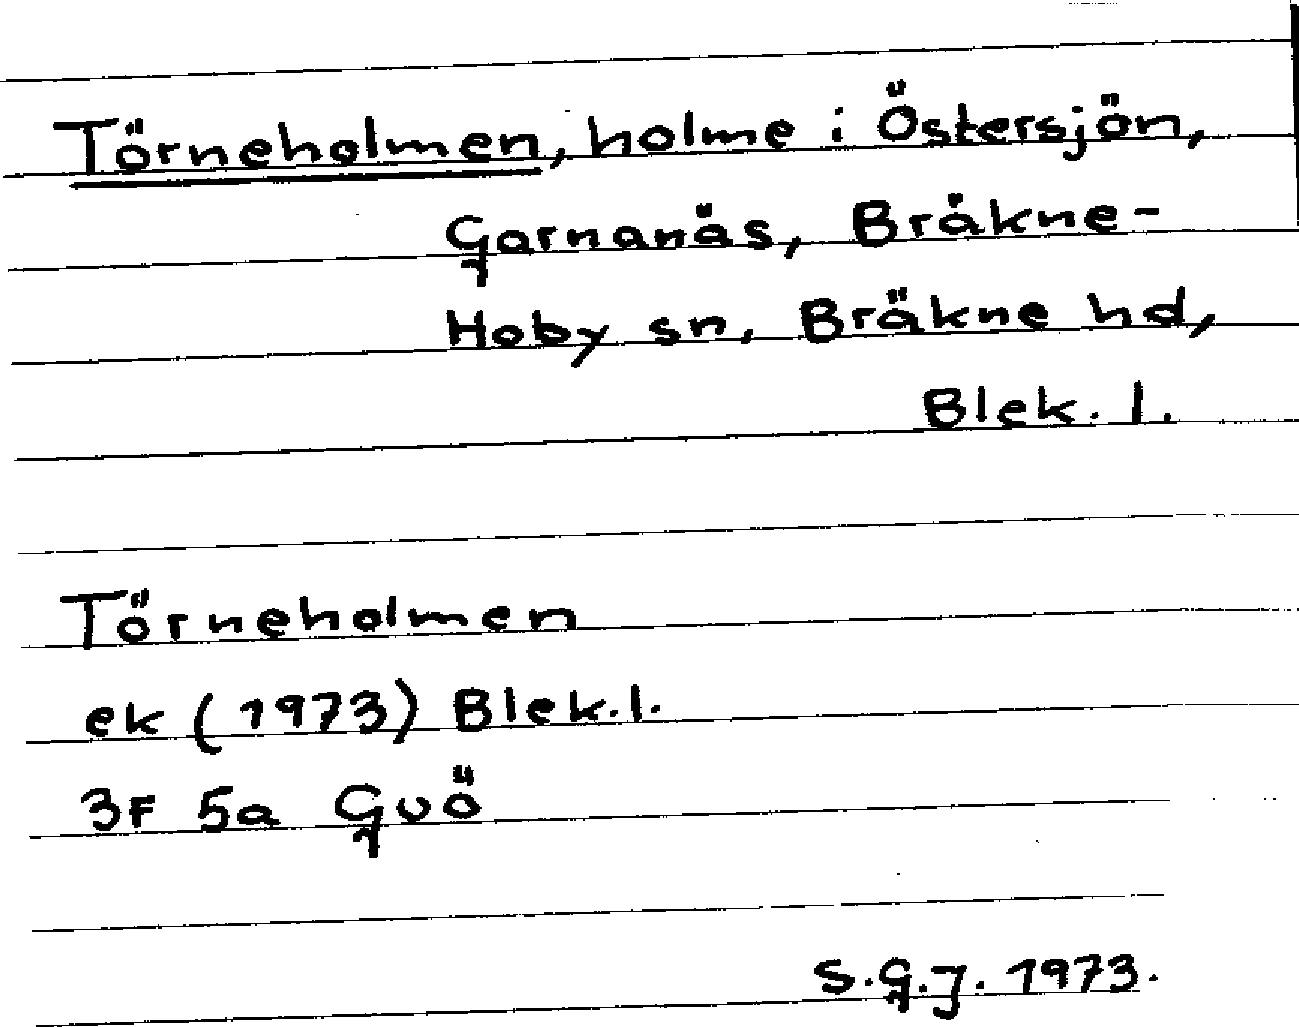 Törneholmen, holme i Östersjön,
Garnanäs, Bräkne-
Hoby sn, Bräkne hd,
Blek. l.
Törneholmen
ek (1973) Blek. l.
3F 5a Guö
S.G.J. 1973.